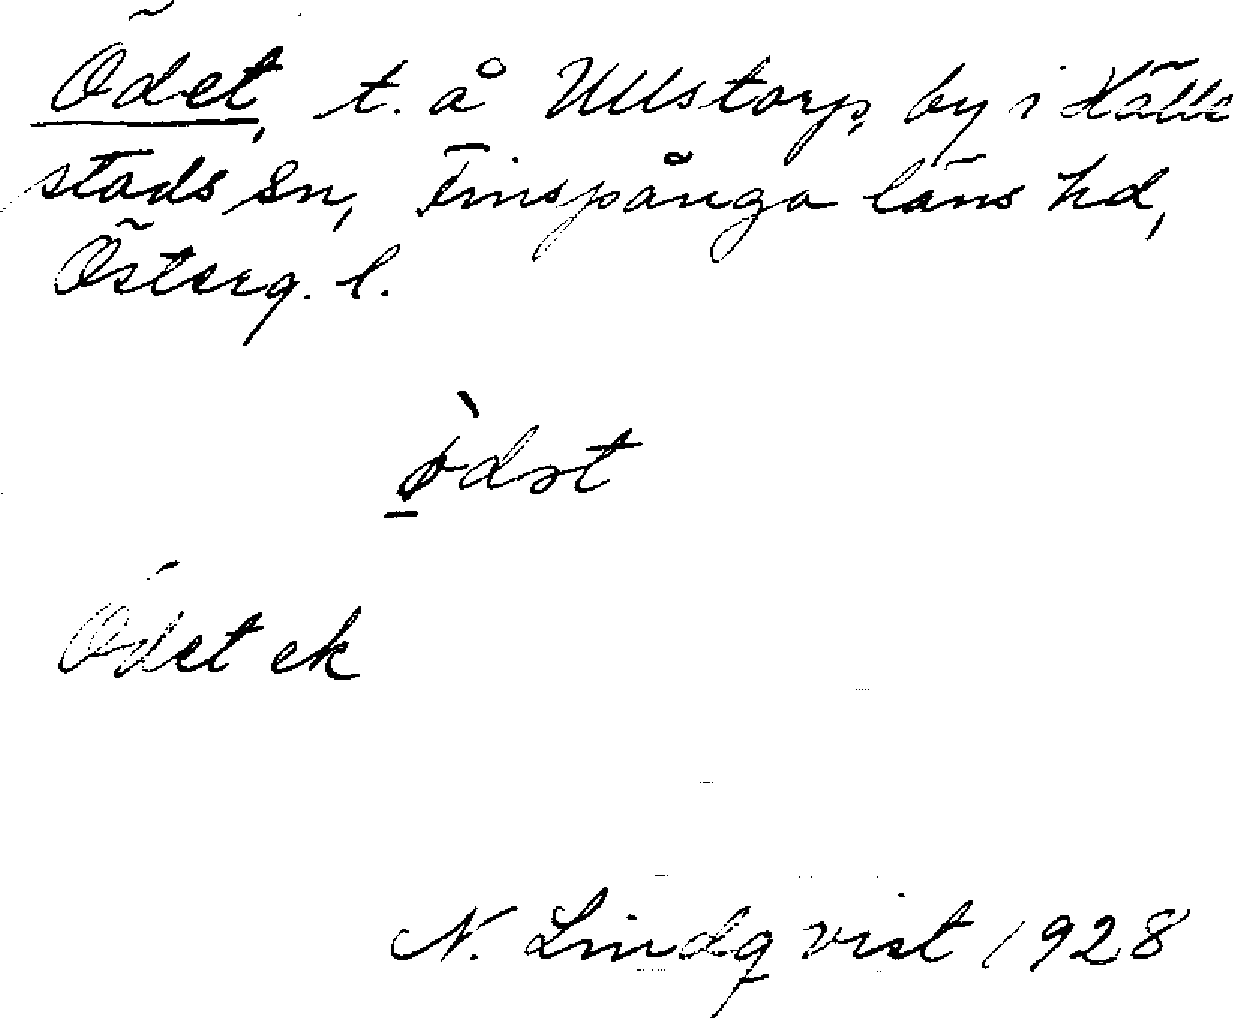 Ödet, t. å Ullstorp, by i Hälle
stads sn, Finspånga läns hd,
Österg. l.
ø̱̀dət
Ödet ek
N. Lindqvist 1928